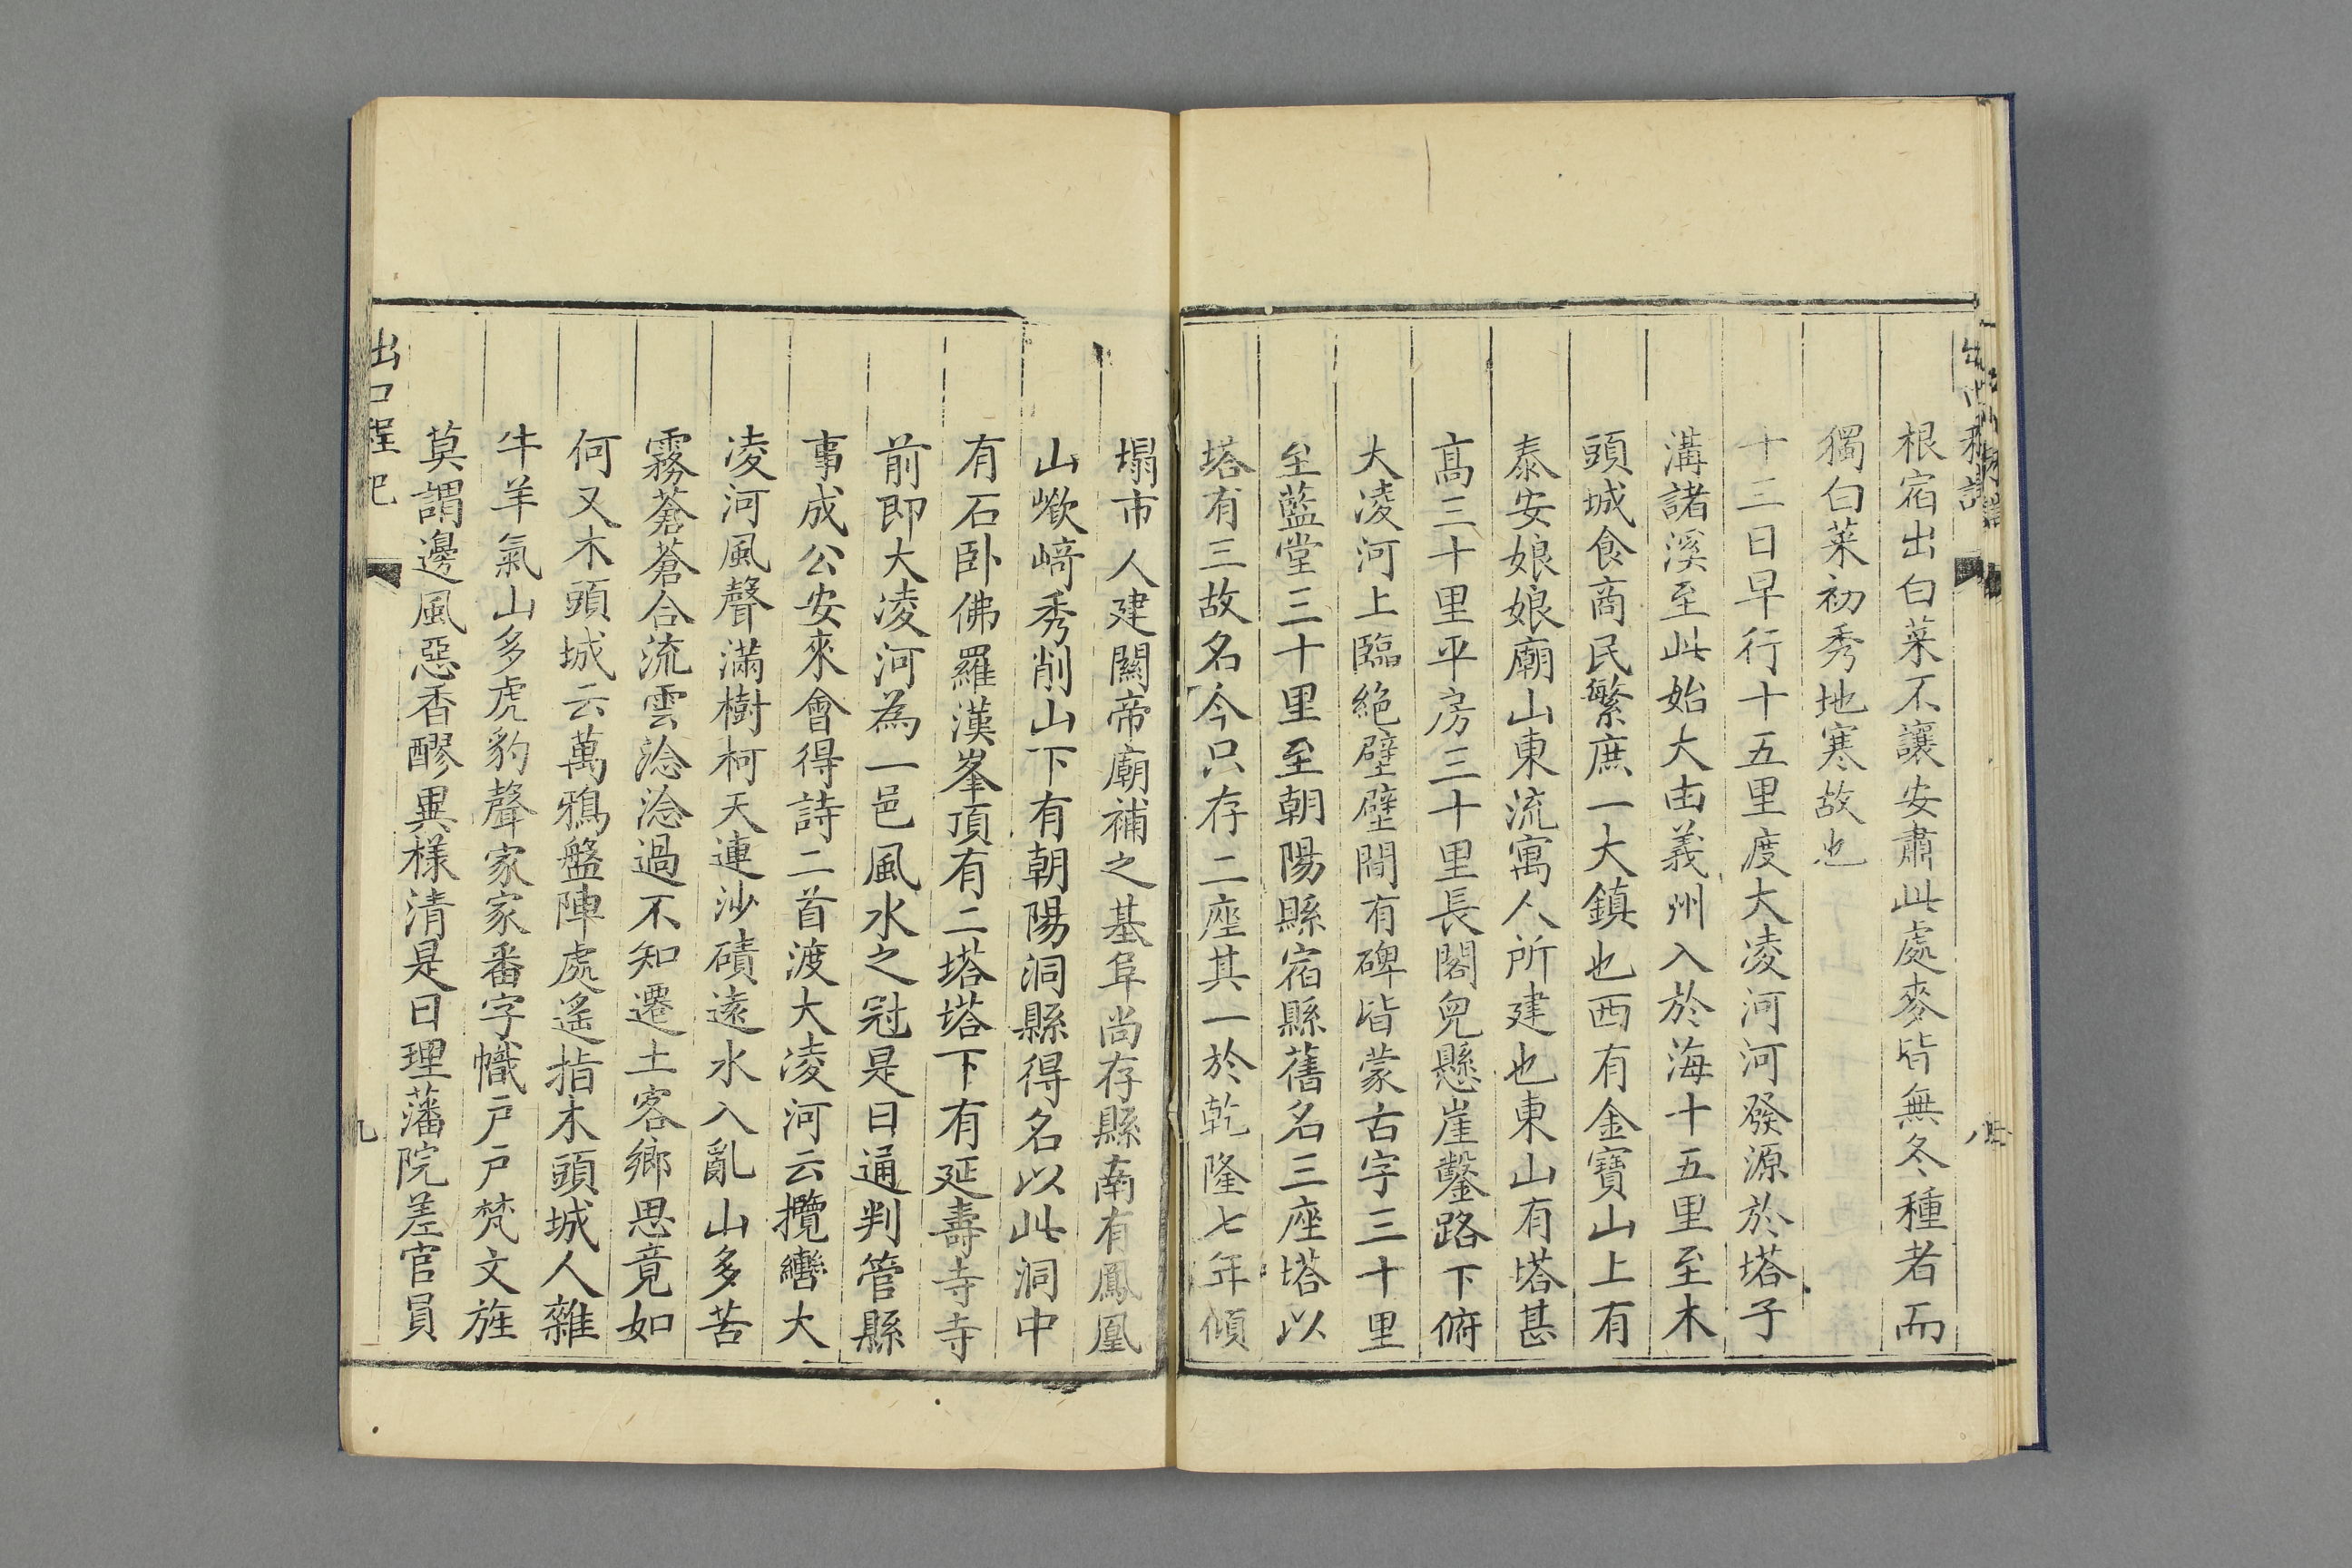 根宿出白菜不讓安肅此處麥皆無冬種者而
獨白菜初秀地寒故也
十三日早行十五里度大凌河河發源於塔子
溝諸溪至此始大由義州入於海十五里至木
頭城食商民繁庶一大鎮也西有金寶山上有
泰安娘娘廟山東流寓人所建也東山有塔甚
高三十里平房三十里長閣兒懸崖鑿路下俯
大凌河上臨絕壁壁間有碑皆蒙古字三十里
至藍堂三十里至朝陽縣宿縣舊名三座塔以
塔有三故名今只存二座其一於乾隆七年傾
塌市人建關帝廟補之基阜尚存縣南有鳳凰
山嶔﨑秀削山下有朝陽洞縣得名以此洞中
有石卧佛羅漢峯頂有二塔塔下有延壽寺寺
前即大凌河為一邑風水之冠是日通判管縣
事成公安來會得詩二首渡大凌河云攬轡大
凌河風聲滿樹柯天連沙磧遠水入亂山多苦
霧蒼蒼合流雲淰淰過不知遷土客鄉思竟如
何又木頭城云萬鴉盤陣處遙指木頭城人雜
牛羊氣山多虎豹聲家家番字幟戶戶梵文旌
莫謂邊風惡香醪異樣清是日理藩院差官員
出口程記
九